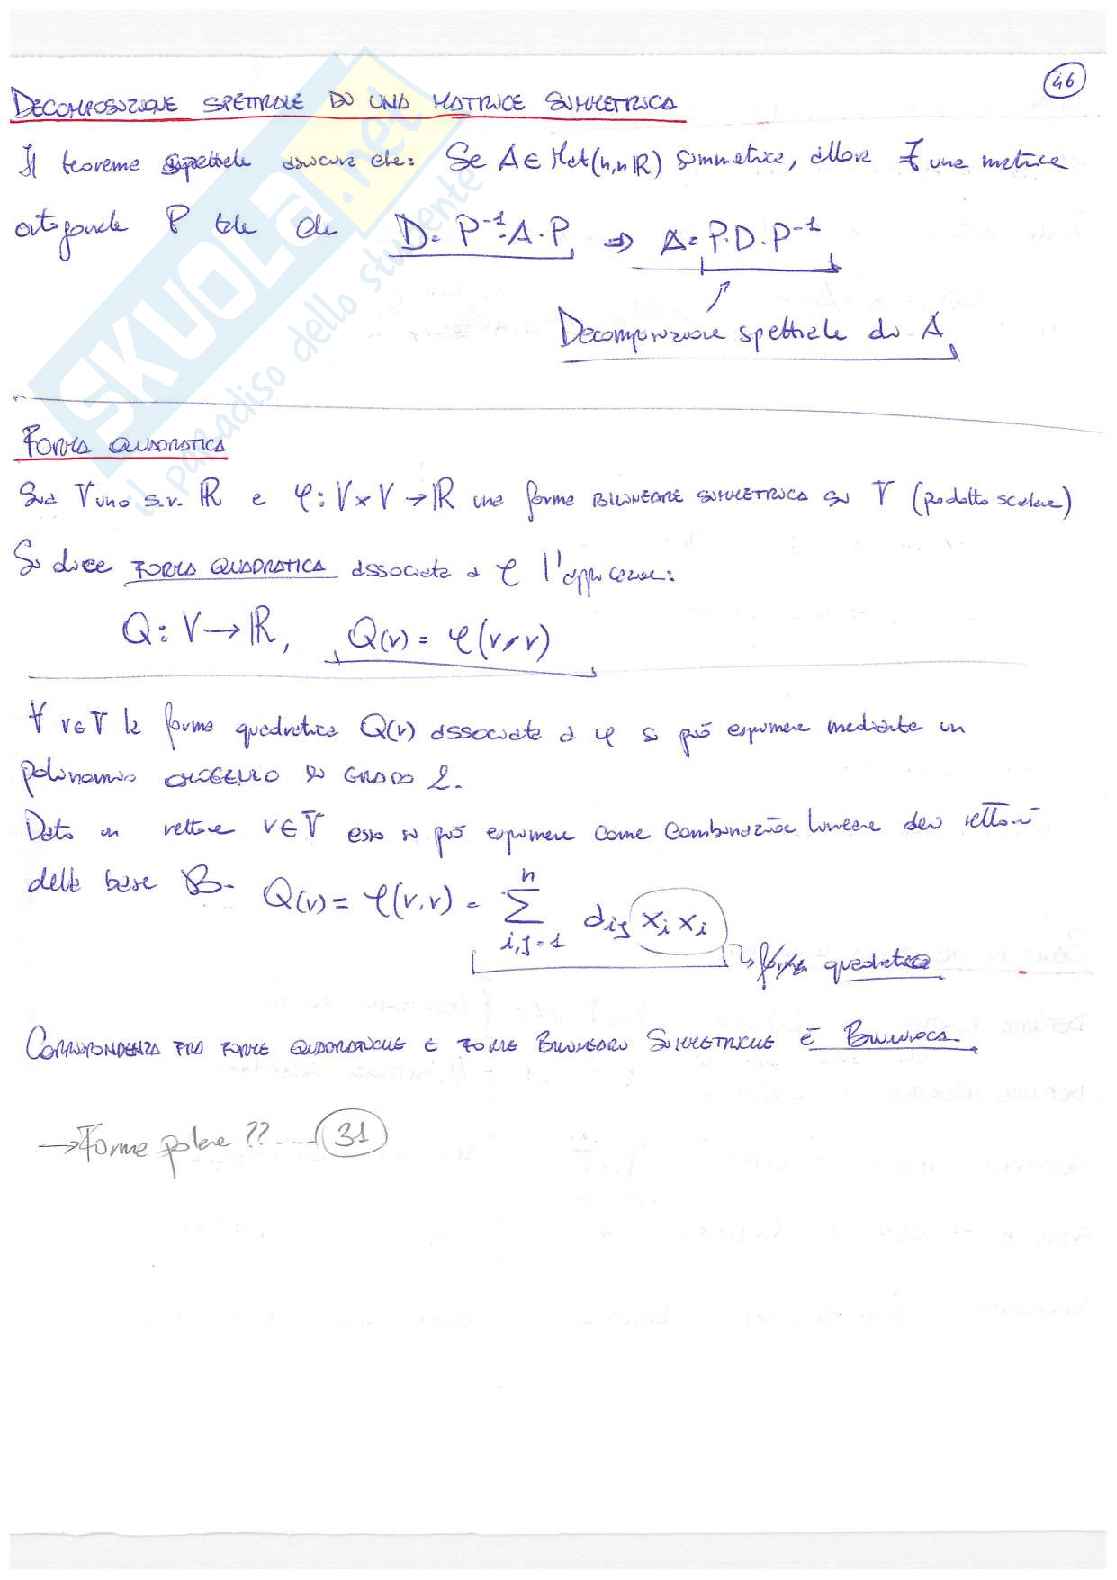 46
DECOMPOSIZIONE SPETTRALE DI UNA MATRICE SIMMETRICA
Il teorema spettrale assicura che: Se A ∈ Mat(n,n R) simmetrica, allora ∃ una matrice
ortogonale P tale che D = P⁻¹·A·P ⇒ A = P·D·P⁻¹
Decomposizione spettrale di A
FORMA QUADRATICA
Sia V uno s.v. R e φ: V×V → R una forma BILINEARE SIMMETRICA su V (prodotto scalare)
Si dice FORMA QUADRATICA associata a φ l'applicazione:
Q: V → R, Q(v) = φ(v,v)
∀ v∈V la forma quadratica Q(v) associata a φ si può esprimere mediante un
polinomio OMOGENEO DI GRADO 2.
Dato un vettore v∈V esso si può esprimere come combinazione lineare dei vettori
della base B. Q(v) = φ(v,v) = ∑ⁿ i,j=1 aij xi xj
forma quadratica
CORRISPONDENZA FRA FORME QUADRATICHE E FORME BILINEARI SIMMETRICHE È BIUNIVOCA.
→ Forma polare ?? ---- 31
SKUOLA.net
il paradiso dello studente